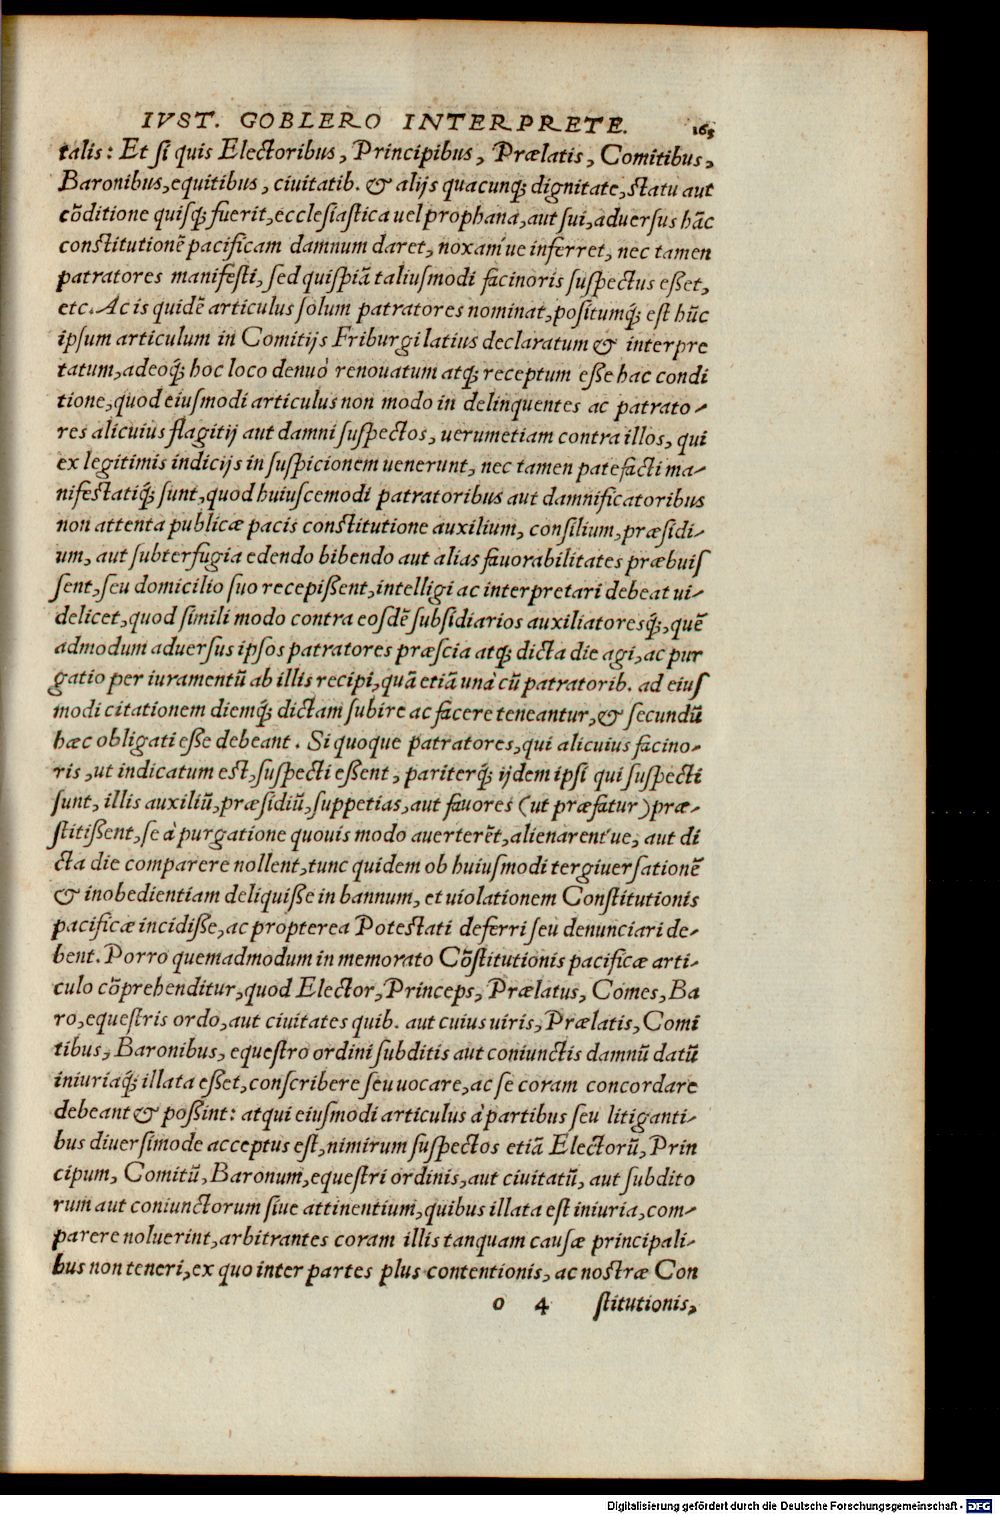 IVST. GOBLERO INTERPRETE. 165
talis: Et si quis Electoribus, Principibus, Prælatis, Comitibus,
Baronibus, equitibus, ciuitatib. & alijs quacunq́; dignitate, statu aut
cōditione quisq́; fuerit, ecclesiastica uel prophana, aut sui, aduersus hāc
constitutionē pacificam damnum daret, noxam'ue inferret, nec tamen
patratores manifesti, sed quispiā taliusmodi facinoris suspectus esset,
etc. Ac is quidē articulus solum patratores nominat, positumq́; est hūc
ipsum articulum in Comitijs Friburgi latius declaratum & interpre
tatum, adeoq́; hoc loco denuò renouatum atq́; receptum esse hac condi
tione, quod eiusmodi articulus non modo in delinquentes ac patrato-
res alicuius flagitij aut damni suspectos, uerumetiam contra illos, qui
ex legitimis indicijs in suspicionem uenerunt, nec tamen patefacti ma-
nifestatiq́; sunt, quod huiuscemodi patratoribus aut damnificatoribus
non attenta publicæ pacis constitutione auxilium, consilium, præsidi-
um, aut subterfugia edendo bibendo aut alias fauorabilitates præbuis
sent, seu domicilio suo recepissent, intelligi ac interpretari debeat ui-
delicet, quod simili modo contra eosdē subsidiarios auxiliatoresq́;, quē
admodum aduersus ipsos patratores præscia atq́; dicta die agi, ac pur
gatio per iuramentū ab illis recipi, quā etiā unà cū patratorib. ad eius
modi citationem diemq́; dictam subire ac facere teneantur, & secundū
hæc obligati esse debeant. Si quoque patratores, qui alicuius facino-
ris, ut indicatum est, suspecti essent, pariterq́; ijdem ipsi qui suspecti
sunt, illis auxiliū, præsidiū, suppetias, aut fauores (ut præfatur) præ-
stitissent, se à purgatione quouis modo auerterēt, alienarent'ue, aut di
cta die comparere nollent, tunc quidem ob huiusmodi tergiuersationē
& inobedientiam deliquisse in bannum, et uiolationem Constitutionis
pacificæ incidisse, ac propterea Potestati deferri seu denunciari de-
bent. Porro quemadmodum in memorato Cōstitutionis pacificæ arti-
culo cōprehenditur, quod Elector, Princeps, Prælatus, Comes, Ba
ro, equestris ordo, aut ciuitates quib. aut cuius uiris, Prælatis, Comi
tibus, Baronibus, equestro ordini subditis aut coniunctis damnū datū
iniuriaq́; illata esset, conscribere seu uocare, ac se coram concordare
debeant & possint: atqui eiusmodi articulus à partibus seu litiganti-
bus diuersimode acceptus est, nimirum suspectos etiā Electorū, Prin
cipum, Comitū, Baronum, equestri ordinis, aut ciuitatū, aut subdito
rum aut coniunctorum siue attinentium, quibus illata est iniuria, com-
parere noluerint, arbitrantes coram illis tanquam causæ principali-
bus non teneri, ex quo inter partes plus contentionis, ac nostræ Con
o 4 stitutionis,
Digitalisierung gefördert durch die Deutsche Forschungsgemeinschaft - DFG